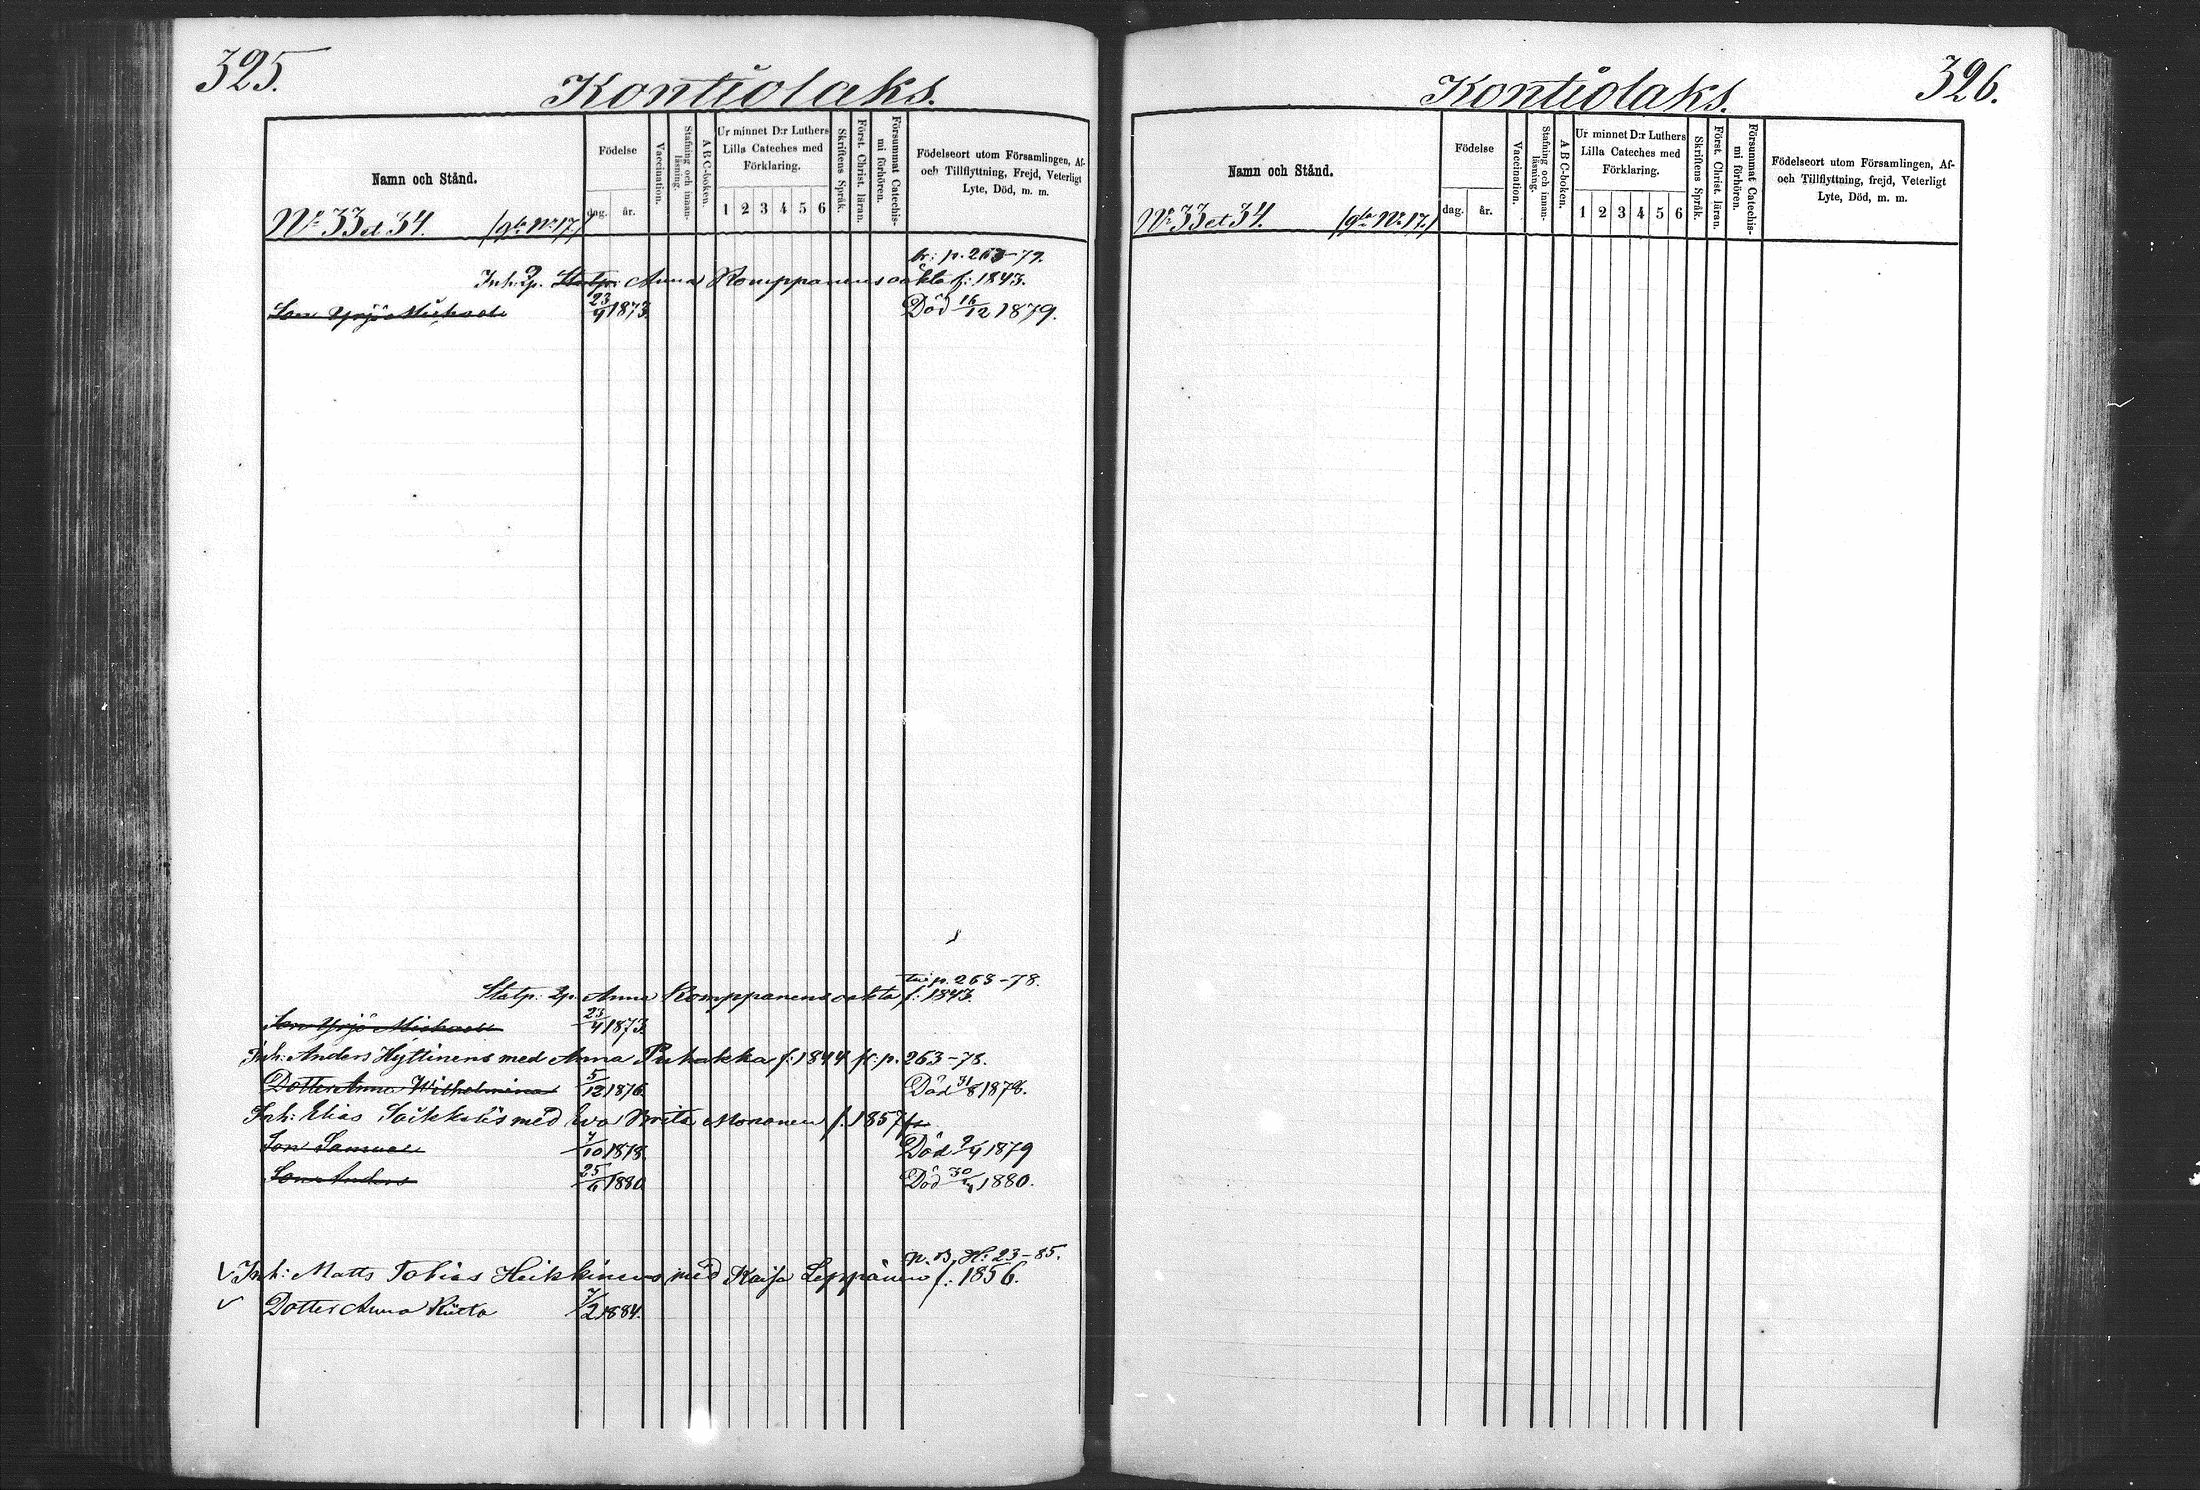 325.
Kontiolaks.
Namn och Stånd.
Födelse
dag. år.
Vaccination.
Stafning och innan-
läsning.
A B C-boken.
Ur minnet D:r Luthers
Lilla Cateches med
Förklaring.
1 2 3 4 5 6
Skriftens Språk.
Först. Christ. läran.
Försummat Catechis-
mi förhören.
Födelseort utom Församlingen, Af-
och Tillflyttning, Frejd, Veterligt
Lyte, Död, m. m.
No 33 et 34. (gla No 17.)
p. 263-79.
Inh: Statp: Anna Romppanens oäkta f: 1843.
Son Yrjö Michael 23/4 1873. Död 16/12 1879.
p. 263-78.
Statp: Anna Romppanens oäkta f: 1843.
Son Yrjö Michael 23/4 1873.
Inh: Anders Hyttinens med Anna Puhakka f: 1844 p. 263-78.
Dotter Anna Wilhelmina 5/12 1876. Död 31/8 1878.
Inh: Elias Saikkolis med Eva Brita Mononen f. 1857
Son Samuel 7/10 1878. Död 9/4 1879
Son Anders 25/6 1880 Död 30/ 1880.
p. B. H: 23-85.
Inh: Matts Tobias Heikkinens med Kaisa Leppänen f. 1856.
Dotter Anna Riitta 7/2 1884.
326.
Kontiolaks.
Namn och Stånd.
Födelse
dag. år.
Vaccination.
Stafning och innan-
läsning.
A B C-boken.
Ur minnet D:r Luthers
Lilla Cateches med
Förklaring.
1 2 3 4 5 6
Skriftens Språk.
Först. Christ. läran.
Försummat Catechis-
mi förhören.
Födelseort utom Församlingen, Af-
och Tillflyttning, frejd, Veterligt
Lyte, Död, m. m.
No 33 et 34. (gla No 17.)